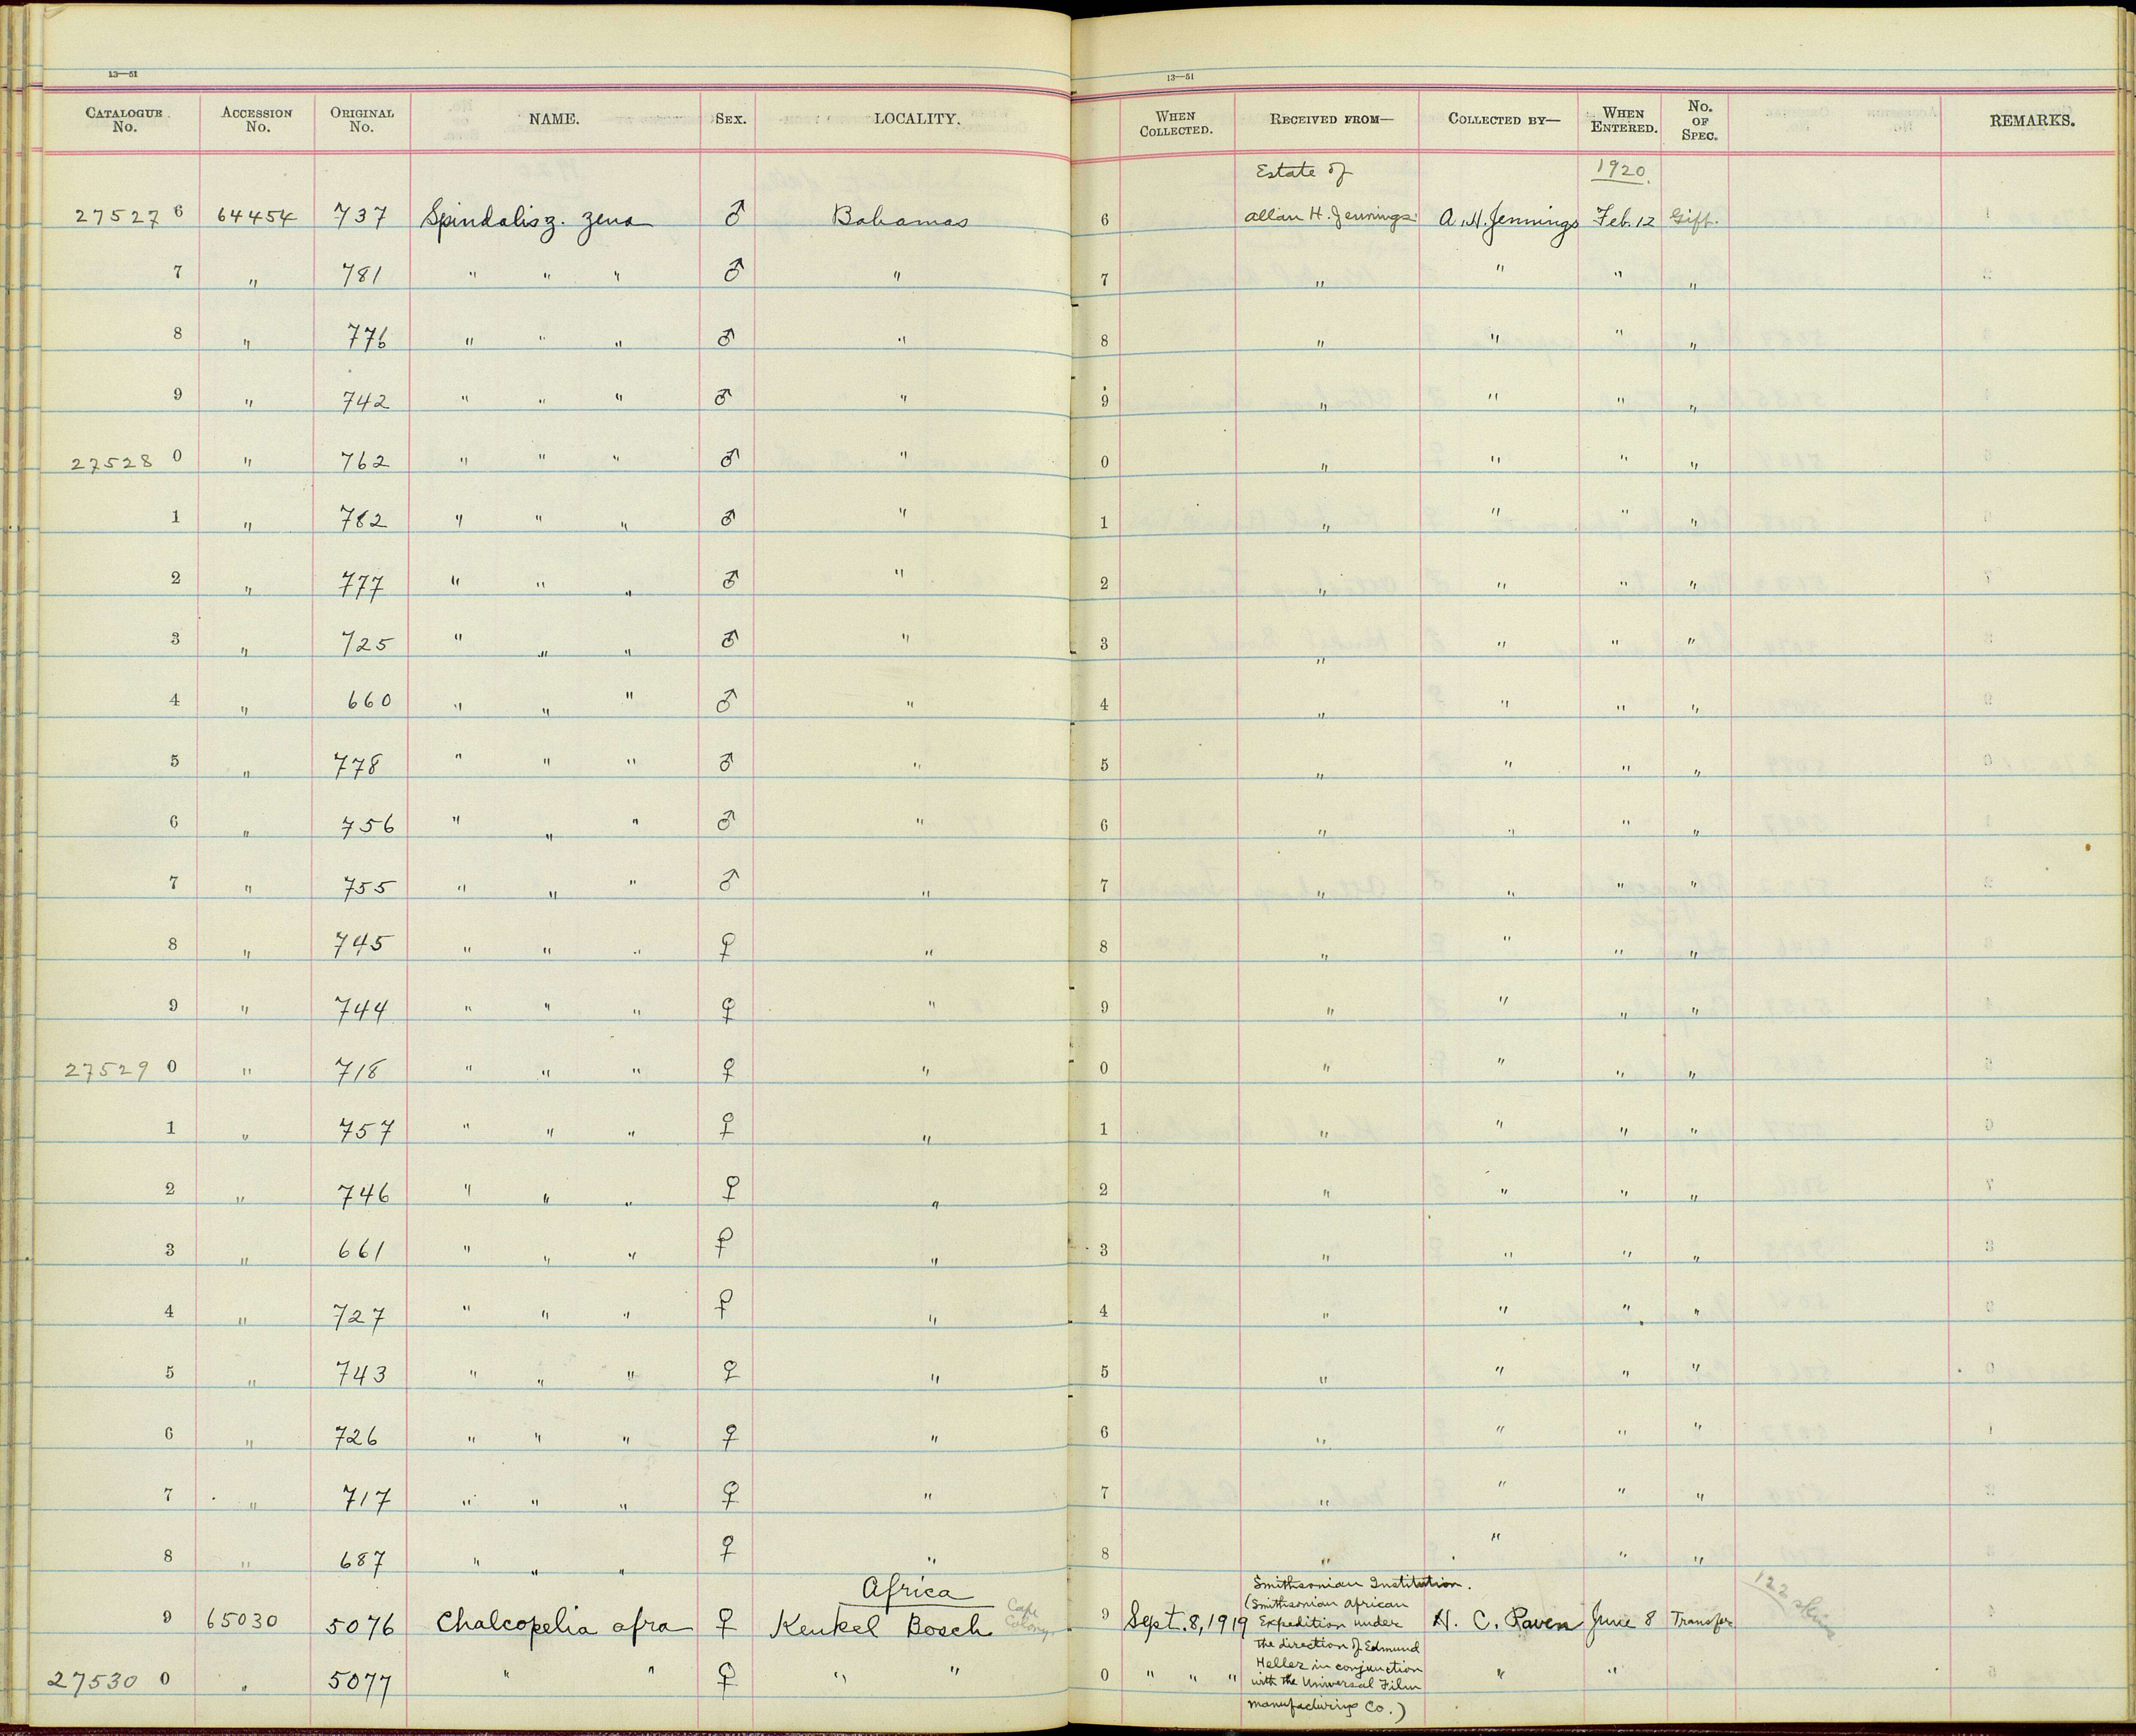 13—51 13—51
CATALOGUE No. ACCESSION No. ORIGINAL No. NAME. SEX. LOCALITY. WHEN COLLECTED. RECEIVED FROM— COLLECTED BY— WHEN ENTERED. No. OF SPEC. REMARKS.
Estate of 1920.
27527 6 64454 737 Spindalis z. zena ♂ Bahamas 6 Allan H. Jennings A. H. Jennings Feb. 12 Gift.
7 " 781 " " " ♂ " 7 " " " "
8 " 776 " " " ♂ " 8 " " " "
9 " 742 " " " ♂ " 9 " " " "
27528 0 " 762 " " " ♂ " 0 " " " "
1 " 782 " " " ♂ " 1 " " " "
2 " 777 " " " ♂ " 2 " " " "
3 " 725 " " " ♂ " 3 " " " "
4 " 660 " " " ♂ " 4 " " " "
5 " 778 " " " ♂ " 5 " " " "
6 " 756 " " " ♂ " 6 " " " "
7 " 755 " " " ♂ " 7 " " " "
8 " 745 " " " ♀ " 8 " " " "
9 " 744 " " " ♀ " 9 " " " "
27529 0 " 718 " " " ♀ " 0 " " " "
1 " 757 " " " ♀ " 1 " " " "
2 " 746 " " " ♀ " 2 " " " "
3 " 661 " " " ♀ " 3 " " " "
4 " 727 " " " ♀ " 4 " " " "
5 " 743 " " " ♀ " 5 " " " "
6 " 726 " " " ♀ " 6 " " " "
7 " 717 " " " ♀ " 7 " " " "
8 " 687 " " " ♀ " 8 " " " "
Africa Smithsonian Institution. 122 skins
9 65030 5076 Chalcopelia afra ♀ Keukel Bosch Cape Colony 9 Sept. 8, 1919 (Smithsonian African Expedition under H. C. Raven June 8 Transfer
the direction of Edmund
27530 0 " 5077 " " ♀ " " 0 " " " Heller in conjunction with the Universal Film " "
manufacturing Co.)